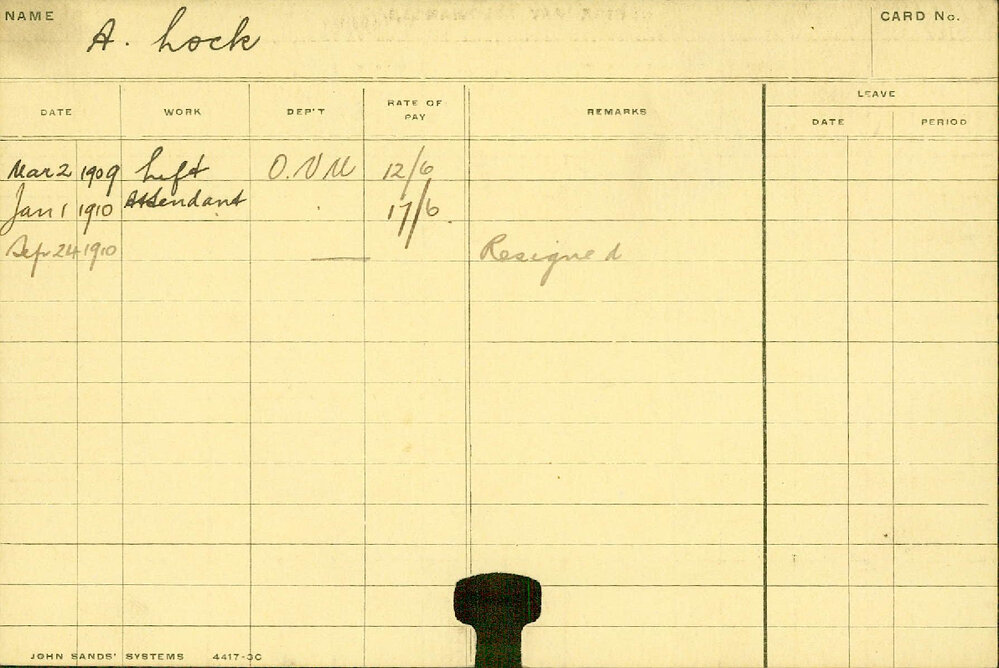 NAME
A. Lock
CARD No.
DATE WORK DEP'T RATE OF PAY REMARKS LEAVE
DATE PERIOD
Mar 2 1909 Lift O.V.M 12/6
Jan 1 1910 Attendant 17/6
Sep 24 1910 — Resigned
JOHN SANDS' SYSTEMS 4417-3C